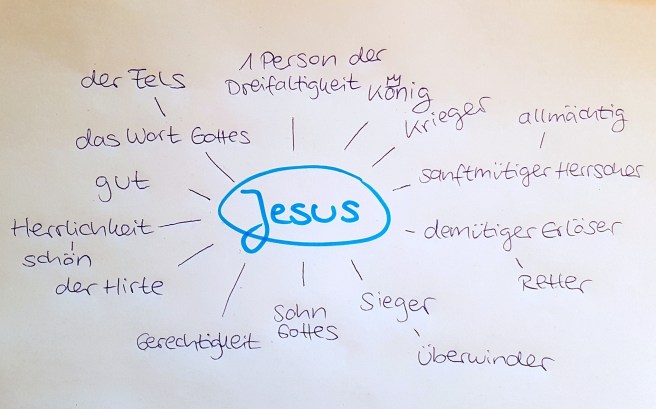 1 Person der
Dreifaltigkeit
König
Krieger
allmächtig
sanftmütiger Herrscher
demütiger Erlöser
Retter
Sieger
Überwinder
Sohn
Gottes
Gerechtigkeit
der Hirte
Herrlichkeit
schön
gut
das Wort Gottes
der Fels
Jesus